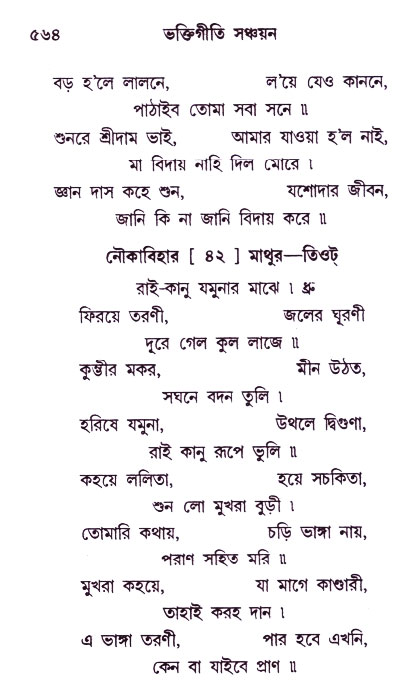 ৫৬৪ ভক্তিগীতি সঞ্চয়ন
বড় হ'লে লালনে, ল'য়ে যেও কাননে,
পাঠাইব তোমা সবা সনে ॥
শুনরে শ্রীদাম ভাই, আমার যাওয়া হ'ল নাই,
মা বিদায় নাহি দিল মোরে ।
জ্ঞান দাস কহে শুন, যশোদার জীবন,
জানি কি না জানি বিদায় করে ॥
নৌকাবিহার [ ৪২ ] মাথুর—তিওট্
রাই-কানু যমুনার মাঝে । ধ্রু
ফিরয়ে তরণী, জলের ঘূরণী
দূরে গেল কুল লাজে ॥
কুম্ভীর মকর, মীন উঠত,
সঘনে বদন তুলি ।
হরিষে যমুনা, উথলে দ্বিগুণা,
রাই কানু রূপে ভুলি ॥
কহয়ে ললিতা, হয়ে সচকিতা,
শুন লো মুখরা বুড়ী ।
তোমারি কথায়, চড়ি ভাঙ্গা নায়,
পরাণ সহিত মরি ॥
মুখরা কহয়ে, যা মাগে কাণ্ডারী,
তাহাই করহ দান ।
এ ভাঙ্গা তরণী, পার হবে এখনি,
কেন বা যাইবে প্রাণ ॥